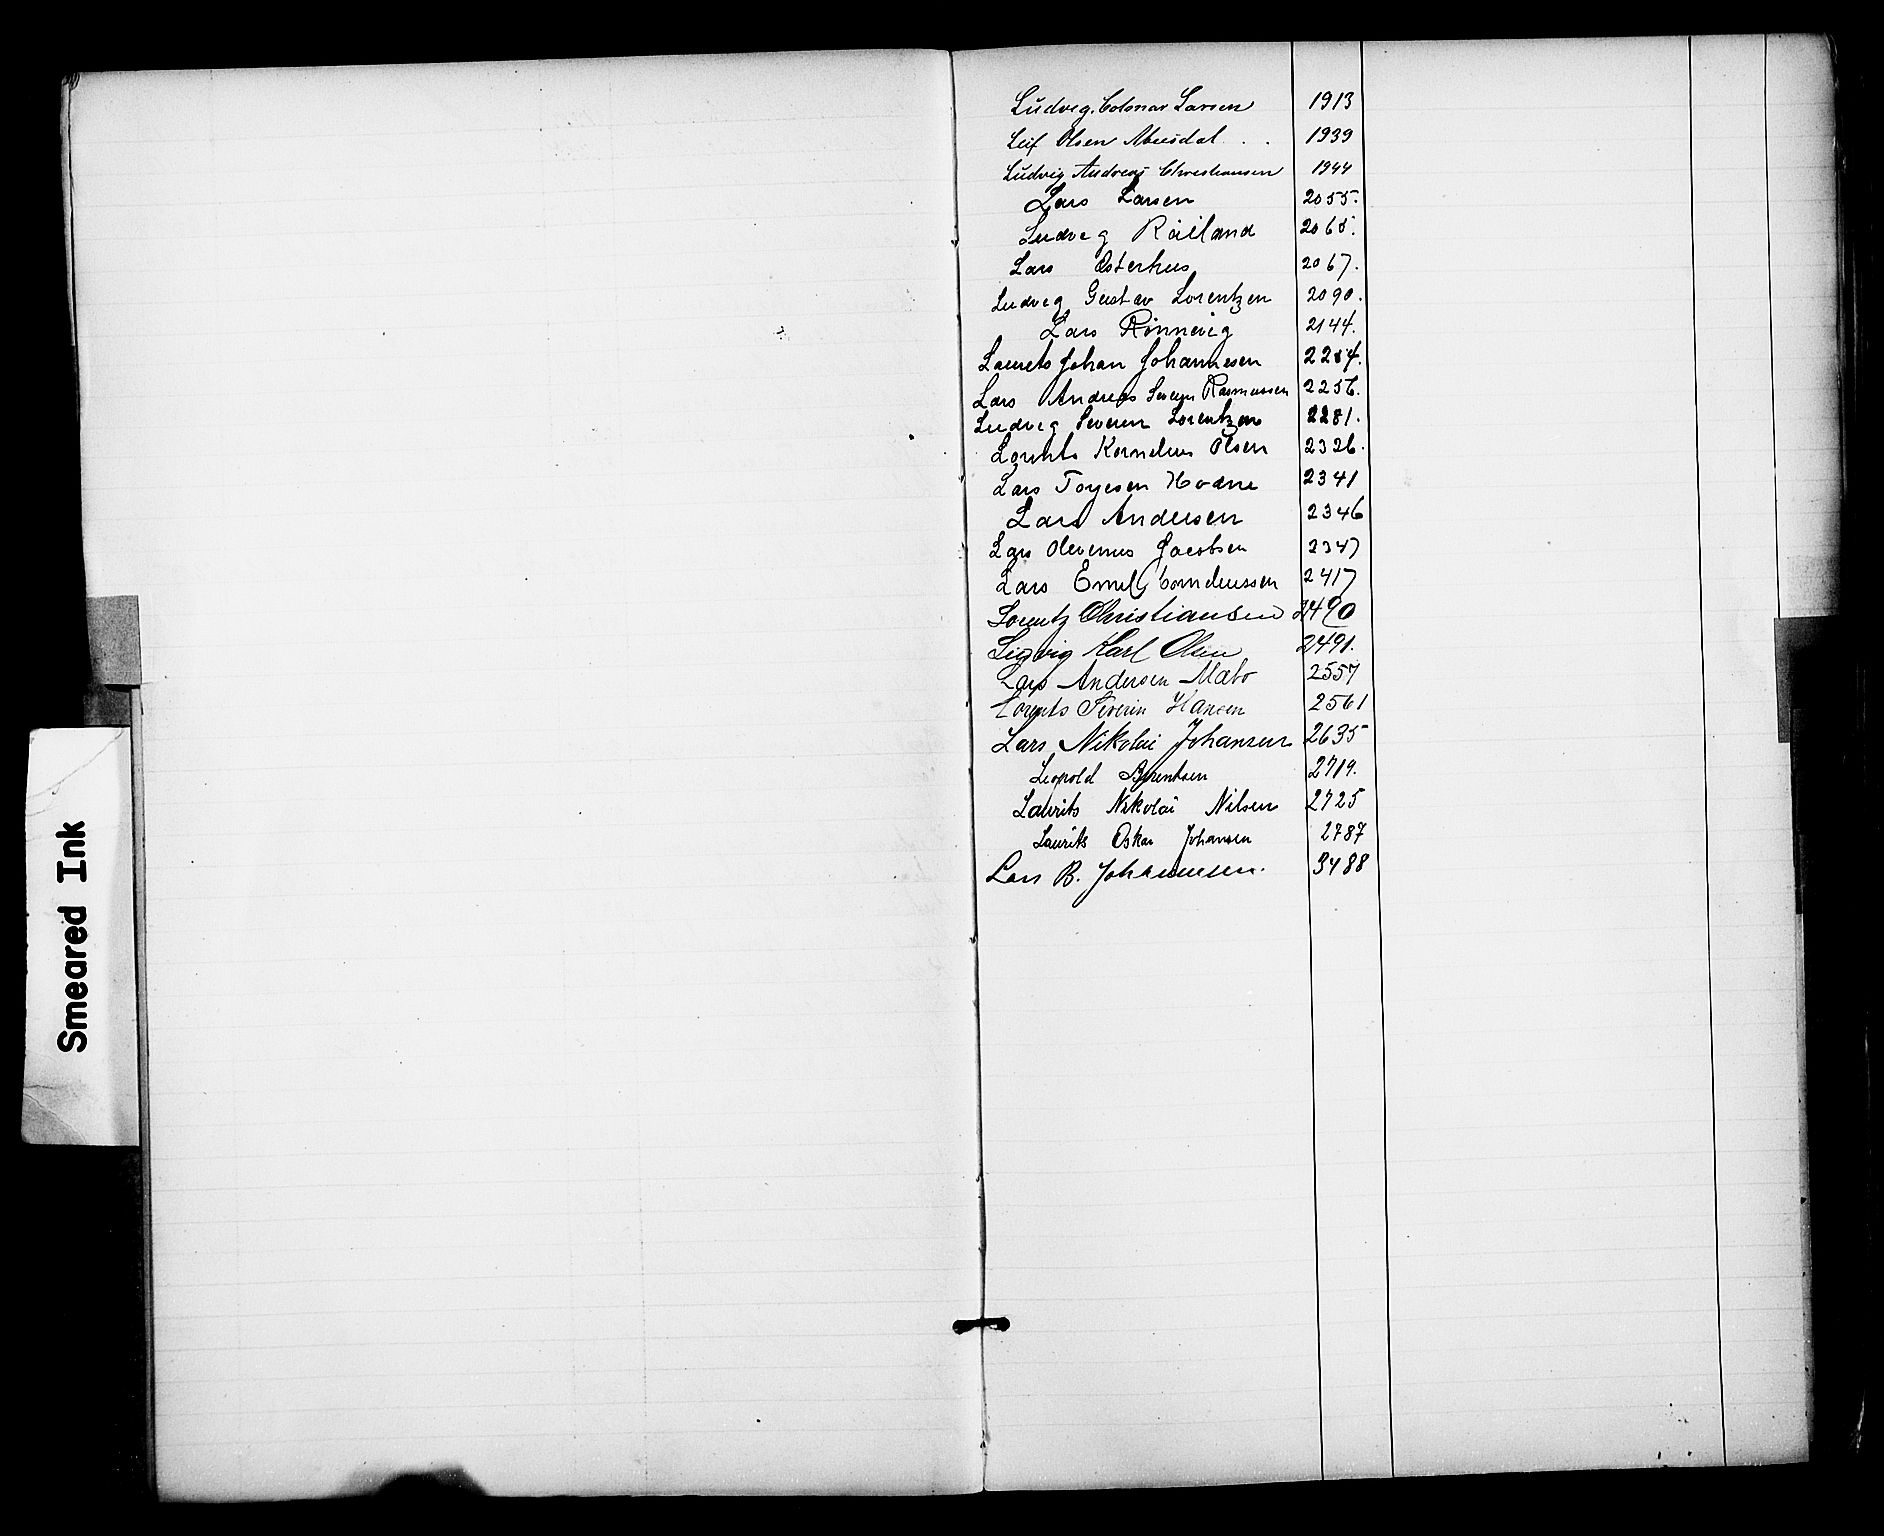 Smeared Ink
Ludvig Larsen 1913
Leif Olsen 1939
Ludvig Andreas Christiansen 1944
Lars Larsen 2055.
Ludvig Roiland 2065.
Lars Osterhus 2067.
Ludvig Gustav Lorentzen 2090.
Lars Rönnevig 2144.
Laurits Johan Johannesen
Lars Andreas Severin Rasmussen 2256.
Ludvig Severin Lorentzen 2281.
Lorents Kornelius Olsen 2326.
Lars Torjesen Hodne 2341
Lars Andersen 2346
Lars Olevinus Jacobsen 2347
Lars Emil Corneliussen 2417
Lorentz Christiansen 2490
Karl Olsen 2491.
Lars Andersen Mæbo 2557
Lorents Severin Hansen 2561
Lars Nikolai Johansen 2635
Leopold Berentsen 2719.
Laurits Nikolai Nilsen 2725
Laurits Oskar Johansen 2787
Lars B. Johannesen. 3488